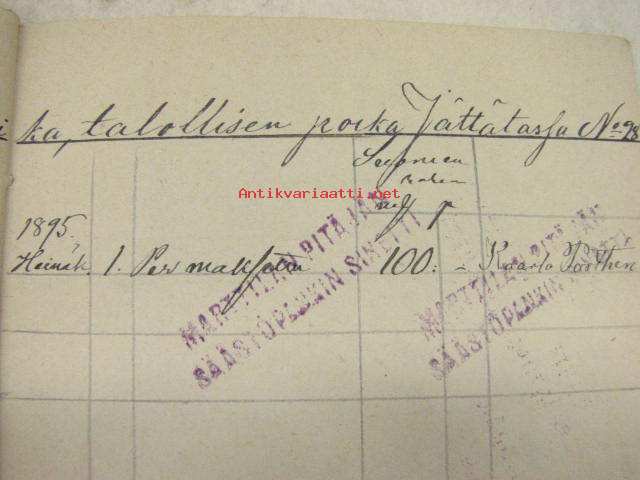 ka, talollisen poika Jättätassa No 98
Suomen
rahan
mf p
Antikvariaatti.net
1895.
Heinäk. 1. Per maksettu 100: - Kaarlo Porthen
MARTTILAN PITÄJÄN
SÄÄSTÖPANKIN SINETTI
MARTTILAN PITÄJÄN
SÄÄSTÖPANKIN SINETTI